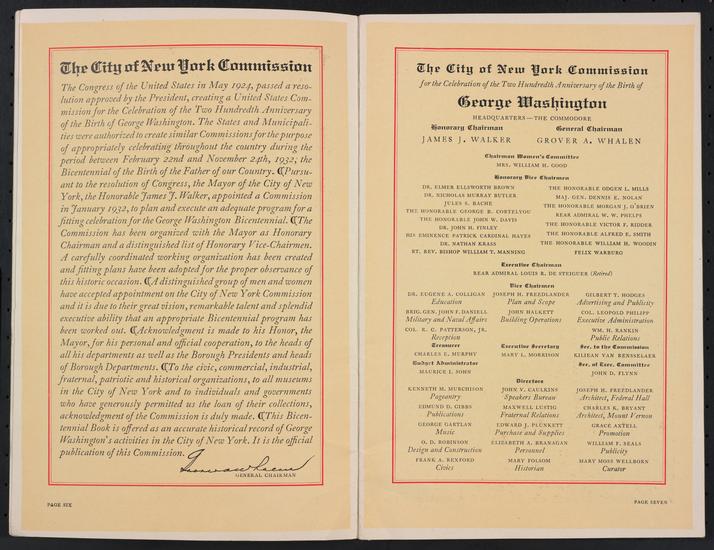 The City of New York Commission
The Congress of the United States in May 1924, passed a reso-
lution approved by the President, creating a United States Com-
mission for the Celebration of the Two Hundredth Anniversary
of the Birth of George Washington. The States and Municipali-
ties were authorized to create similar Commissions for the purpose
of appropriately celebrating throughout the country during the
period between February 22nd and November 24th, 1932, the
Bicentennial of the Birth of the Father of our Country. ¶Pursu-
ant to the resolution of Congress, the Mayor of the City of New
York, the Honorable James J. Walker, appointed a Commission
in January 1932, to plan and execute an adequate program for a
fitting celebration for the George Washington Bicentennial. ¶The
Commission has been organized with the Mayor as Honorary
Chairman and a distinguished list of Honorary Vice-Chairmen.
A carefully coordinated working organization has been created
and fitting plans have been adopted for the proper observance of
this historic occasion. ¶A distinguished group of men and women
have accepted appointment on the City of New York Commission
and it is due to their great vision, remarkable talent and splendid
executive ability that an appropriate Bicentennial program has
been worked out. ¶Acknowledgment is made to his Honor, the
Mayor, for his personal and official cooperation, to the heads of
all his departments as well as the Borough Presidents and heads
of Borough Departments. ¶To the civic, commercial, industrial,
fraternal, patriotic and historical organizations, to all museums
in the City of New York and to individuals and governments
who have generously permitted us the loan of their collections,
acknowledgment of the Commission is duly made. ¶This Bicen-
tennial Book is offered as an accurate historical record of George
Washington's activities in the City of New York. It is the official
publication of this Commission.
GENERAL CHAIRMAN
PAGE SIX
The City of New York Commission
for the Celebration of the Two Hundredth Anniversary of the Birth of
George Washington
HEADQUARTERS—THE COMMODORE
Honorary Chairman
JAMES J. WALKER
General Chairman
GROVER A. WHALEN
Chairman Women's Committee
MRS. WILLIAM H. GOOD
Honorary Vice Chairmen
DR. ELMER ELLSWORTH BROWN
DR. NICHOLAS MURRAY BUTLER
JULES S. BACHE
THE HONORABLE GEORGE B. CORTELYOU
THE HONORABLE JOHN W. DAVIS
DR. JOHN H. FINLEY
HIS EMINENCE PATRICK CARDINAL HAYES
DR. NATHAN KRASS
RT. REV. BISHOP WILLIAM T. MANNING
THE HONORABLE OGDEN L. MILLS
MAJ. GEN. DENNIS E. NOLAN
THE HONORABLE MORGAN J. O'BRIEN
REAR ADMIRAL W. W. PHELPS
THE HONORABLE VICTOR F. RIDDER
THE HONORABLE ALFRED E. SMITH
THE HONORABLE WILLIAM H. WOODIN
FELIX WARBURG
Executive Chairman
REAR ADMIRAL LOUIS R. DE STEIGUER (Retired)
Vice Chairmen
DR. EUGENE A. COLLIGAN
Education
BRIG. GEN. JOHN F. DANIELL
Military and Naval Affairs
COL. R. C. PATTERSON, JR.
Reception
JOSEPH H. FREEDLANDER
Plan and Scope
JOHN HALKETT
Building Operations
GILBERT T. HODGES
Advertising and Publicity
COL. LEOPOLD PHILIPP
Executive Administration
WM. H. RANKIN
Public Relations
Treasurer
CHARLES E. MURPHY
Budget Administrator
MAURICE I. JOHN
Executive Secretary
MARY L. MORRISON
Sec. to the Commission
KILIEAN VAN RENSSELAER
Sec. of Exec. Committee
JOHN D. FLYNN
Directors
KENNETH M. MURCHISON
Pageantry
EDMUND D. GIBBS
Publications
GEORGE GARTLAN
Music
O. D. ROBINSON
Design and Construction
FRANK A. REXFORD
Civics
JOHN V. CAULKINS
Speakers Bureau
MAXWELL LUSTIG
Fraternal Relations
EDWARD J. PLUNKETT
Purchase and Supplies
ELIZABETH A. BRANAGAN
Personnel
MARY FOLSOM
Historian
JOSEPH H. FREEDLANDER
Architect, Federal Hall
CHARLES K. BRYANT
Architect, Mount Vernon
GRACE AXTELL
Promotion
WILLIAM F. SEALS
Publicity
MARY MOSS WELLBORN
Curator
PAGE SEVEN